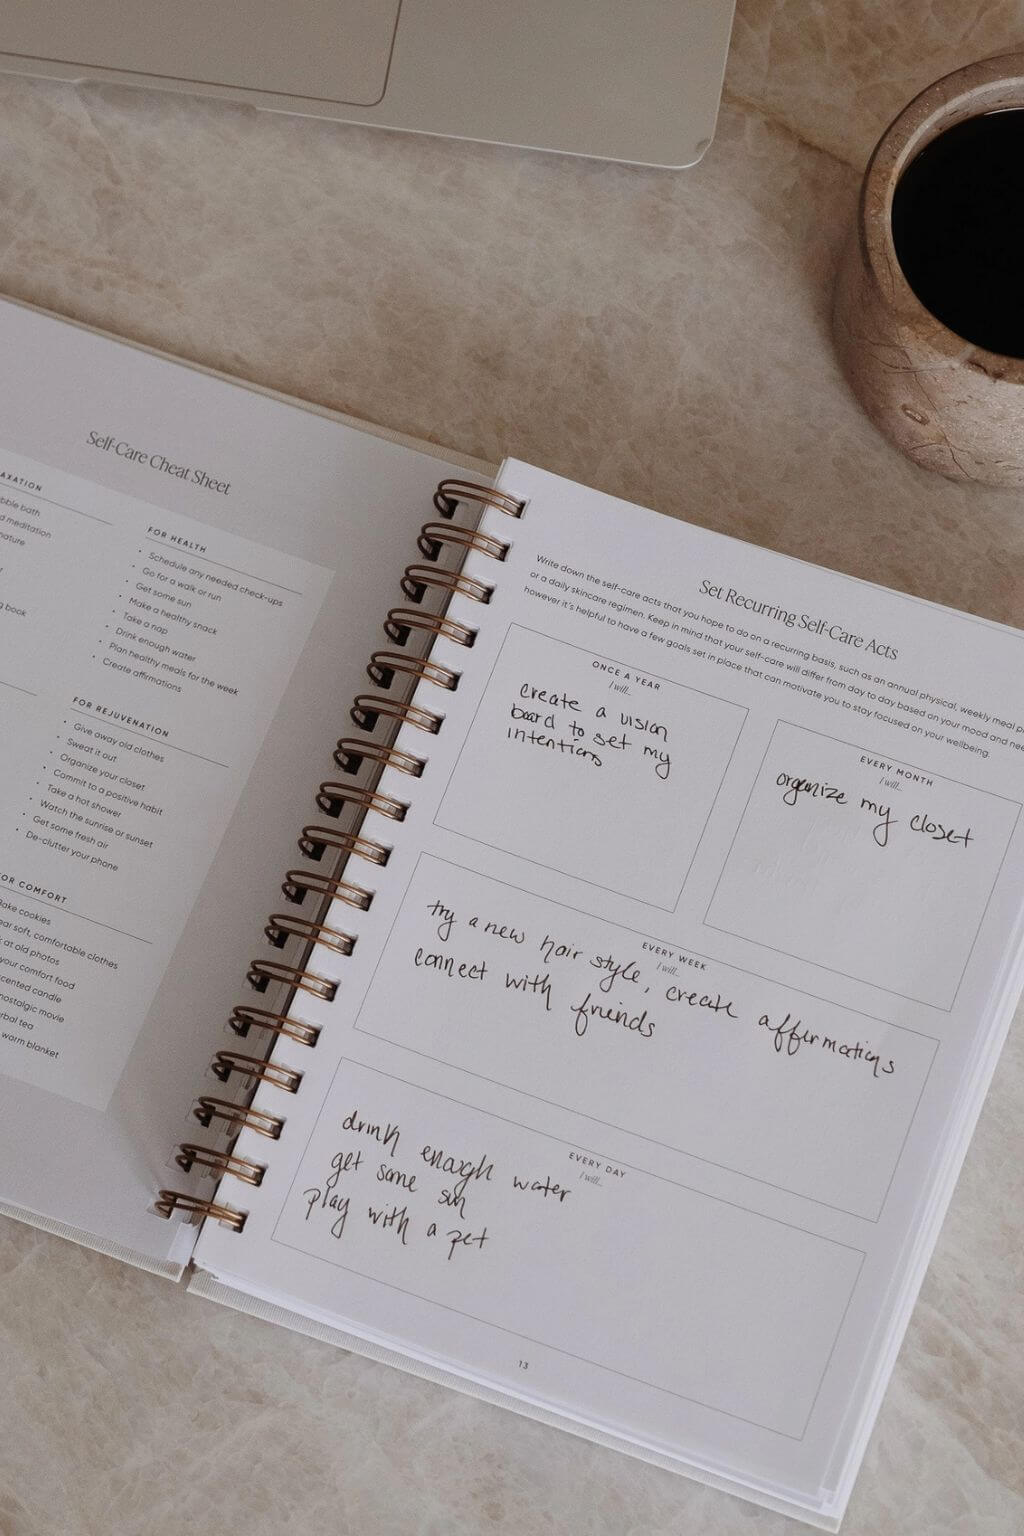 Self-Care Cheat Sheet
bath
meditation
book
FOR HEALTH
• Schedule any needed check-ups
• Go for a walk or run
• Get some sun
• Make a healthy snack
• Take a nap
• Drink enough water
• Plan healthy meals for the week
• Create affirmations
FOR REJUVENATION
• Give away old clothes
• Sweat it out
Organize your closet
• Commit to a positive habit
• Take a hot shower
• Watch the sunrise or sunset
• Get some fresh air
• De-clutter your phone
COMFORT
cookies
soft, comfortable clothes
at old photos
your comfort food
candle
nostalgic movie
tea
warm blanket
Set Recurring Self-Care Acts
Write down the self-care acts that you hope to do on a recurring basis, such as an annual physical, weekly meal
or a daily skincare regimen. Keep in mind that your self-care will differ from day to day based on your mood and
however it's helpful to have a few goals set in place that can motivate you to stay focused on your wellbeing.
ONCE A YEAR
I will...
create a vision
board to set my
intentions
EVERY MONTH
I will...
organize my closet
EVERY WEEK
I will...
try a new hair style, create affirmations
connect with friends
EVERY DAY
I will...
drink enough water
get some sun
play with a pet
13